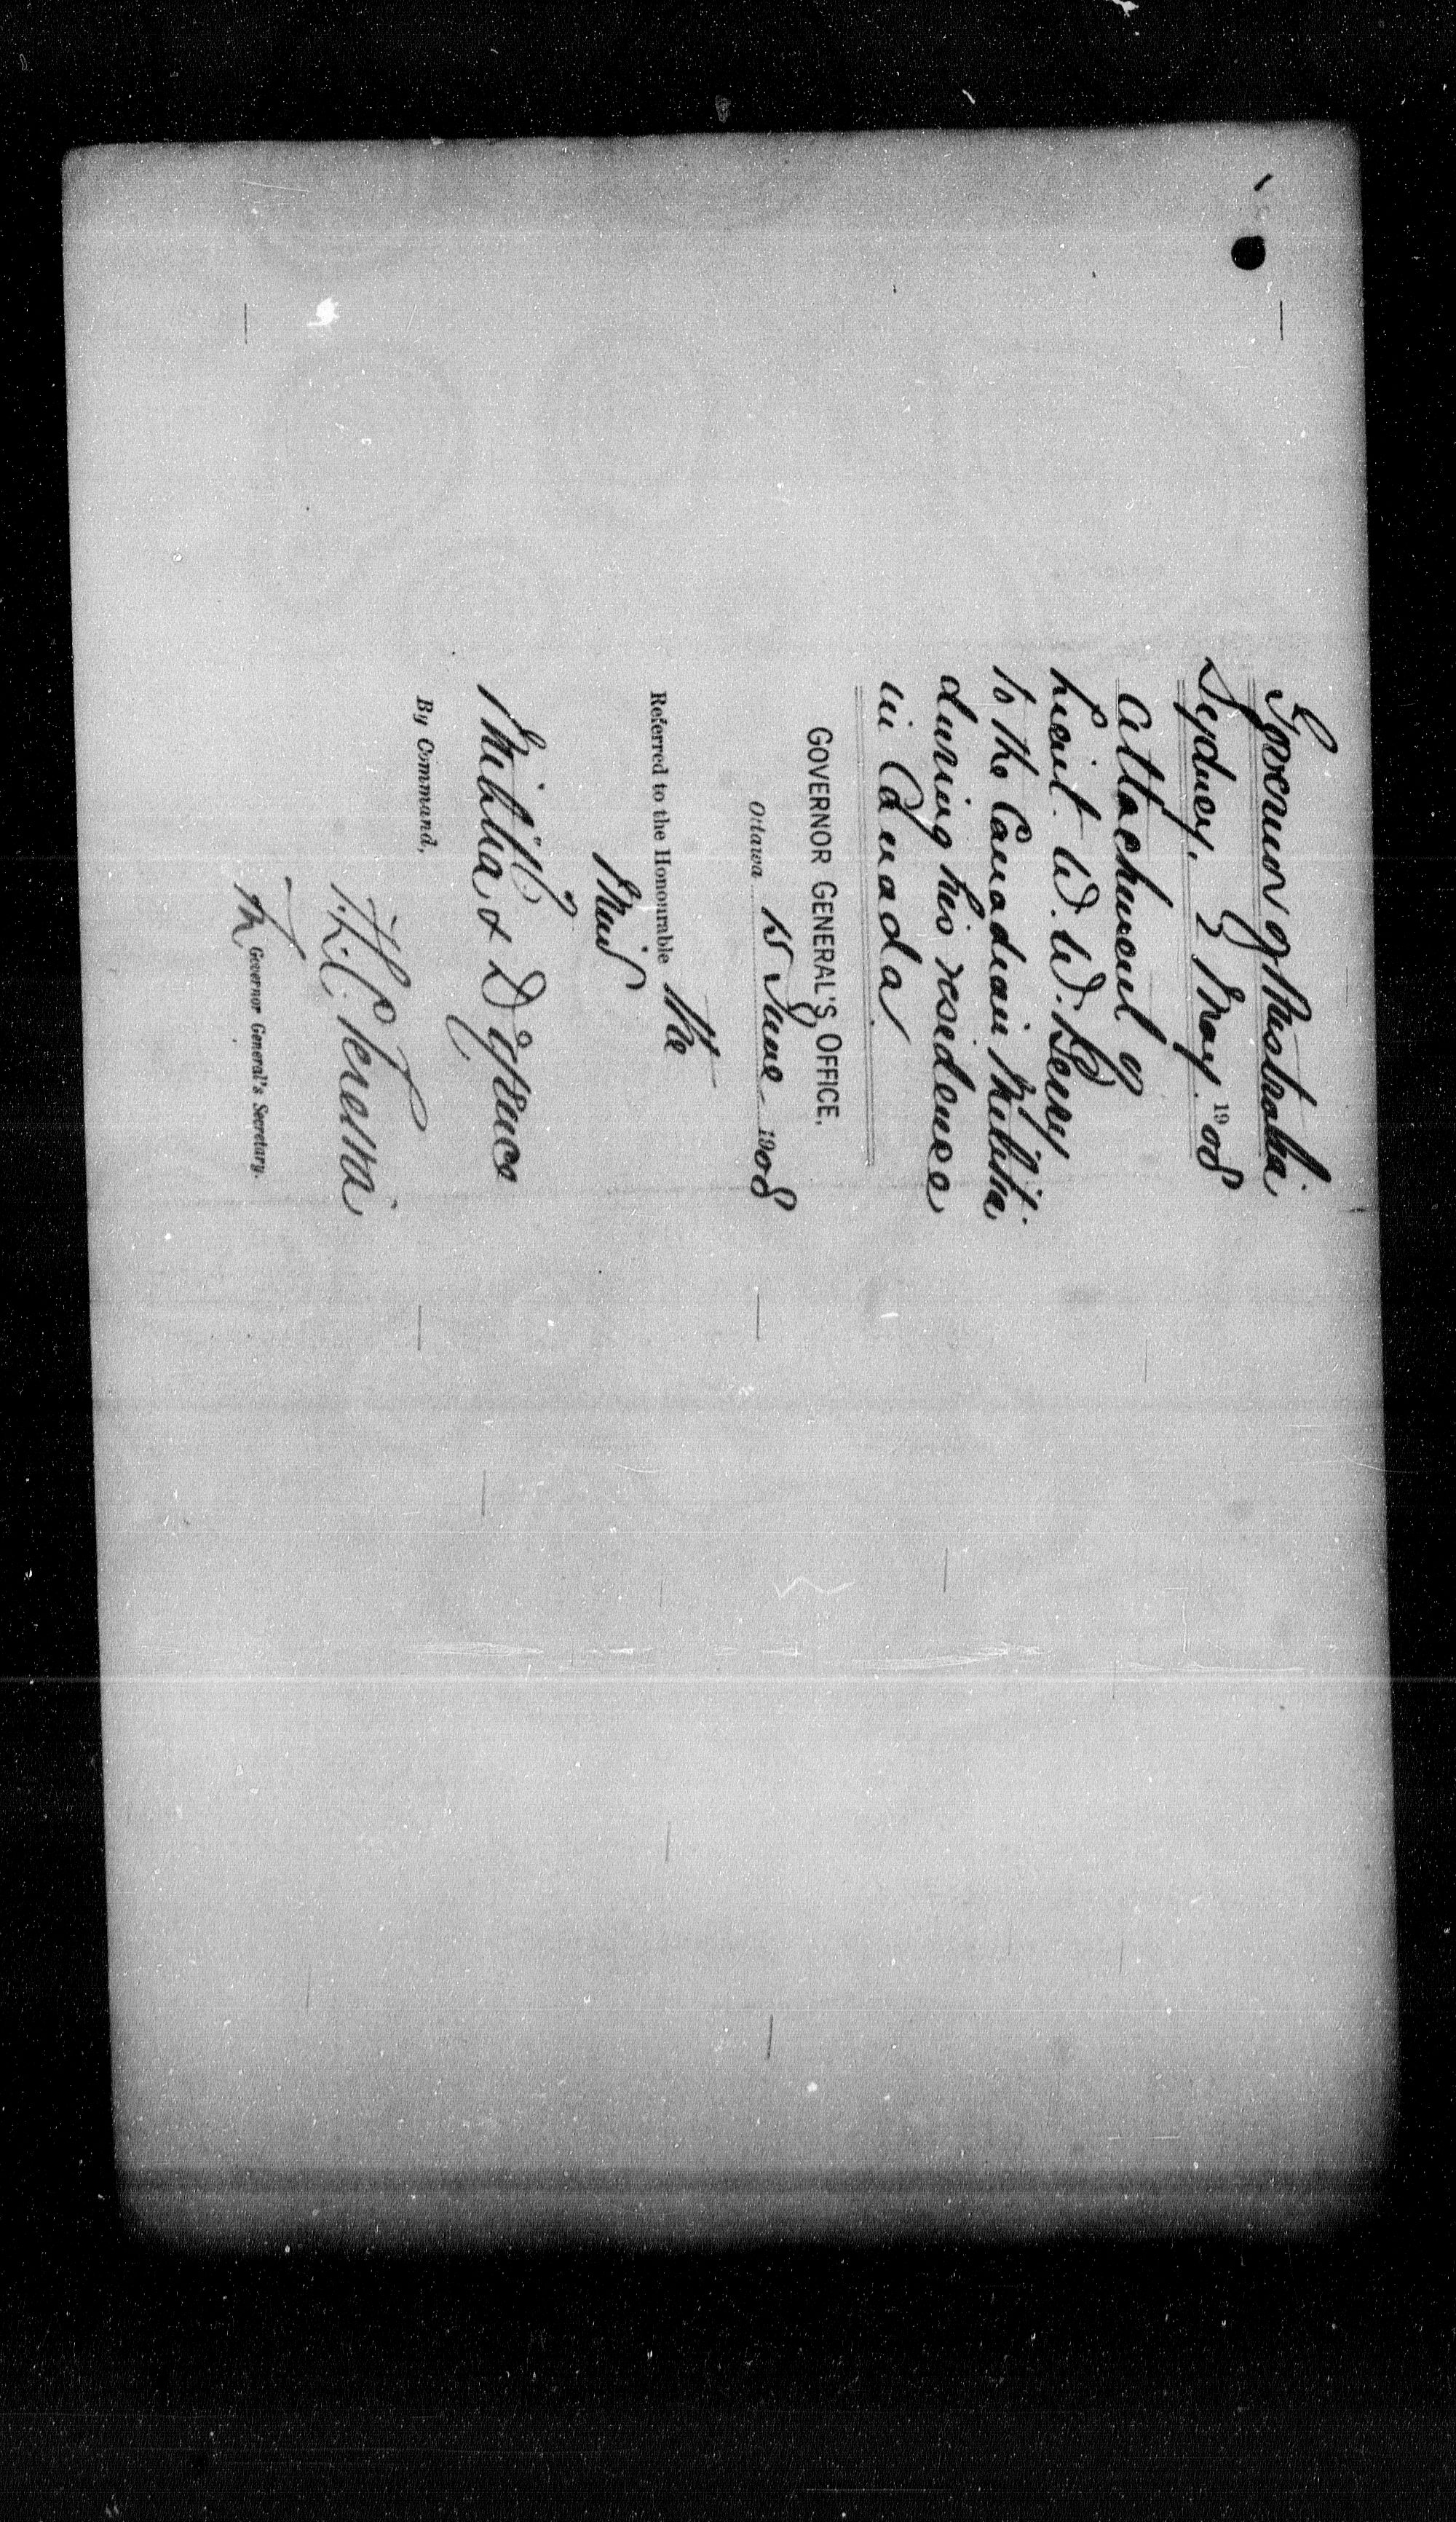 Governor of Australia
Sydney. 5 May. 1908
Attachment of
Lieut. W. W. Berry
to the Canadian Militia
during his residence
in Canada.
GOVERNOR GENERAL'S OFFICE,
Ottawa 15 June 1908
Referred to the Honourable the
Min
Militia & Defence
By Command,
Governor General's Secretary.